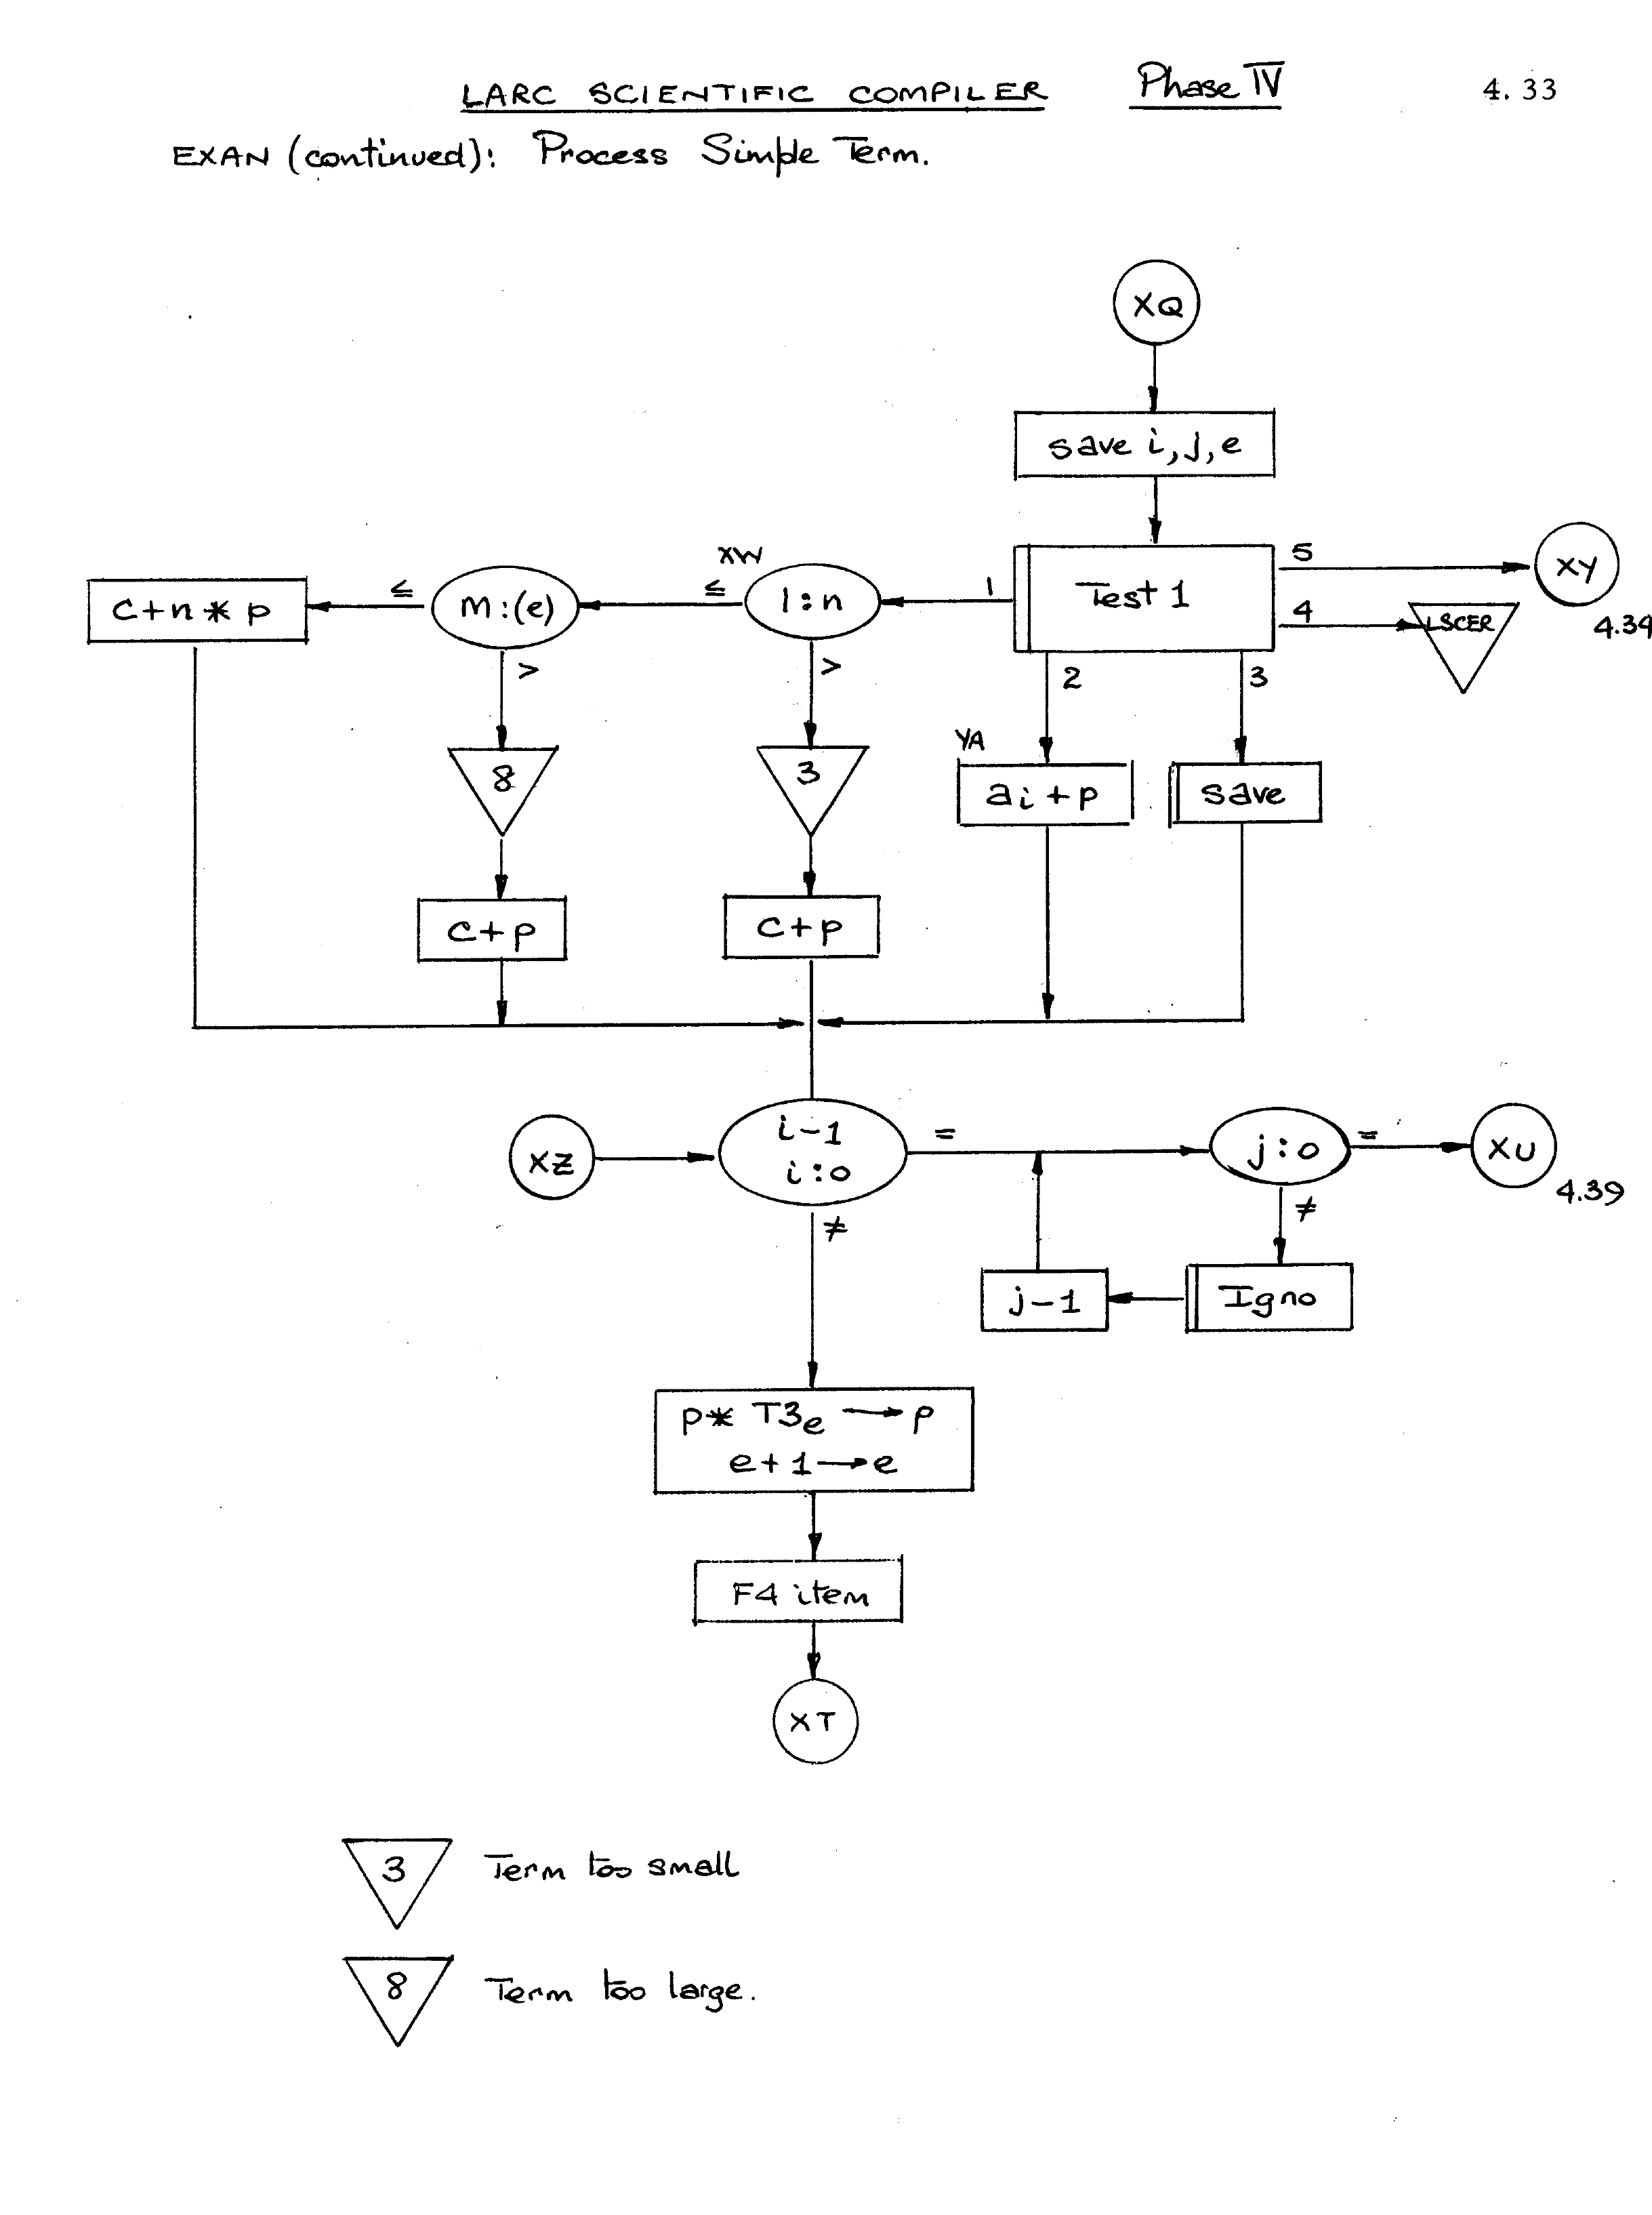 LARC SCIENTIFIC COMPILER Phase IV 4.33
EXAN (continued): Process Simple Term.
XQ
save i, j, e
Test 1
5
XY
4.34
4
LSCER
1
XW
1:n
≤
m:(e)
≤
C+n * p
>
>
2
3
8
3
YA
ai+p
save
C+p
C+p
XZ
i-1
i:0
=
j:0
=
XU
4.39
≠
≠
j-1
Igno
p* T3e → p
e+1 → e
F4 item
XT
3 Term too small
8 Term too large.